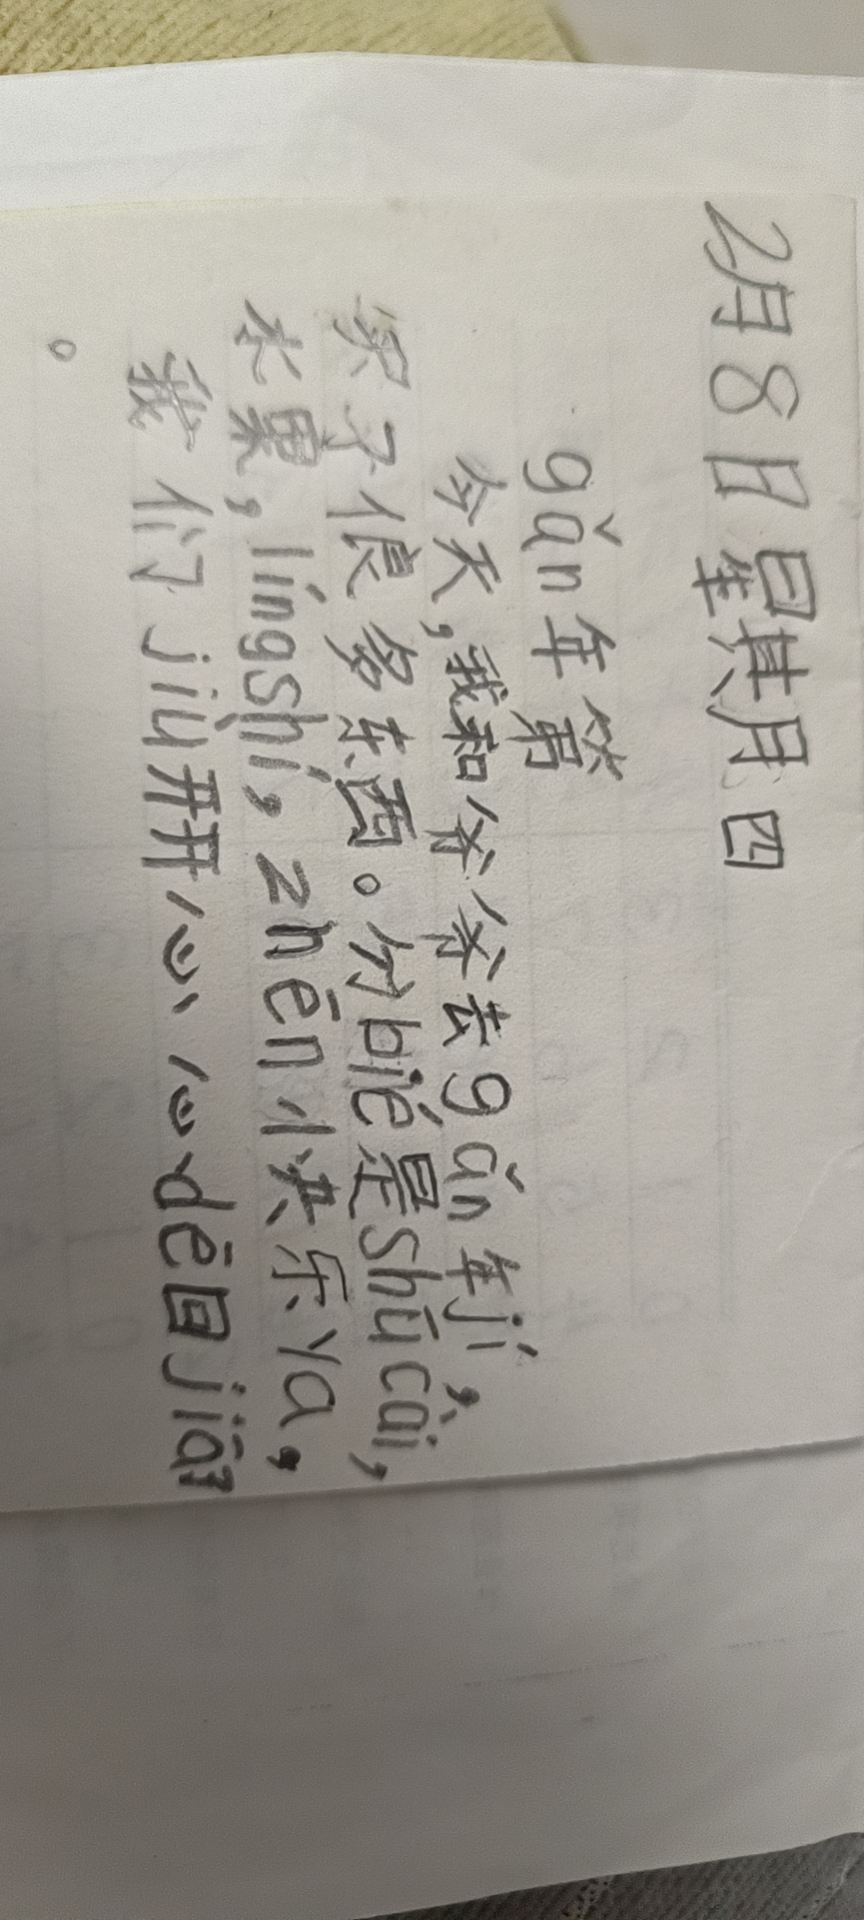 2月8日星期四
gǎn年第
今天，我和爷爷去gǎn年jí，
买了很多东西。分bié是shūcài，
水果，língshí，zhēn小快乐ya，
我们jiù开开心心dē回jiā了
。